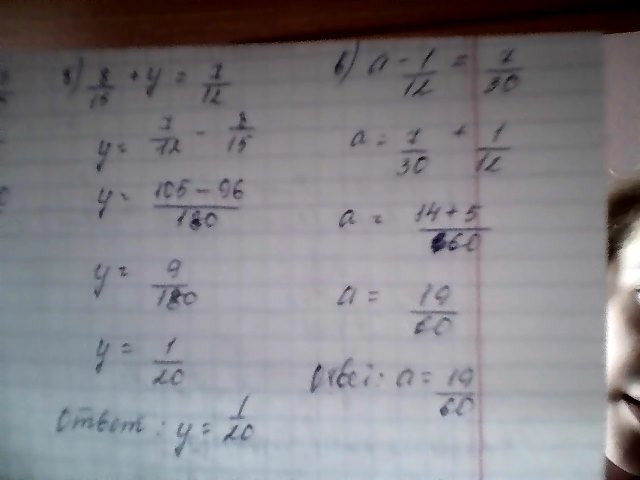 б) 8/15 + y = 7/12
y = 7/12 - 8/15
y = 105-96/180
y = 9/180
y = 1/20
Ответ: y = 1/20
в) a - 1/12 = 7/30
a = 7/30 + 1/12
a = 14+5/60
a = 19/60
Ответ: a = 19/60